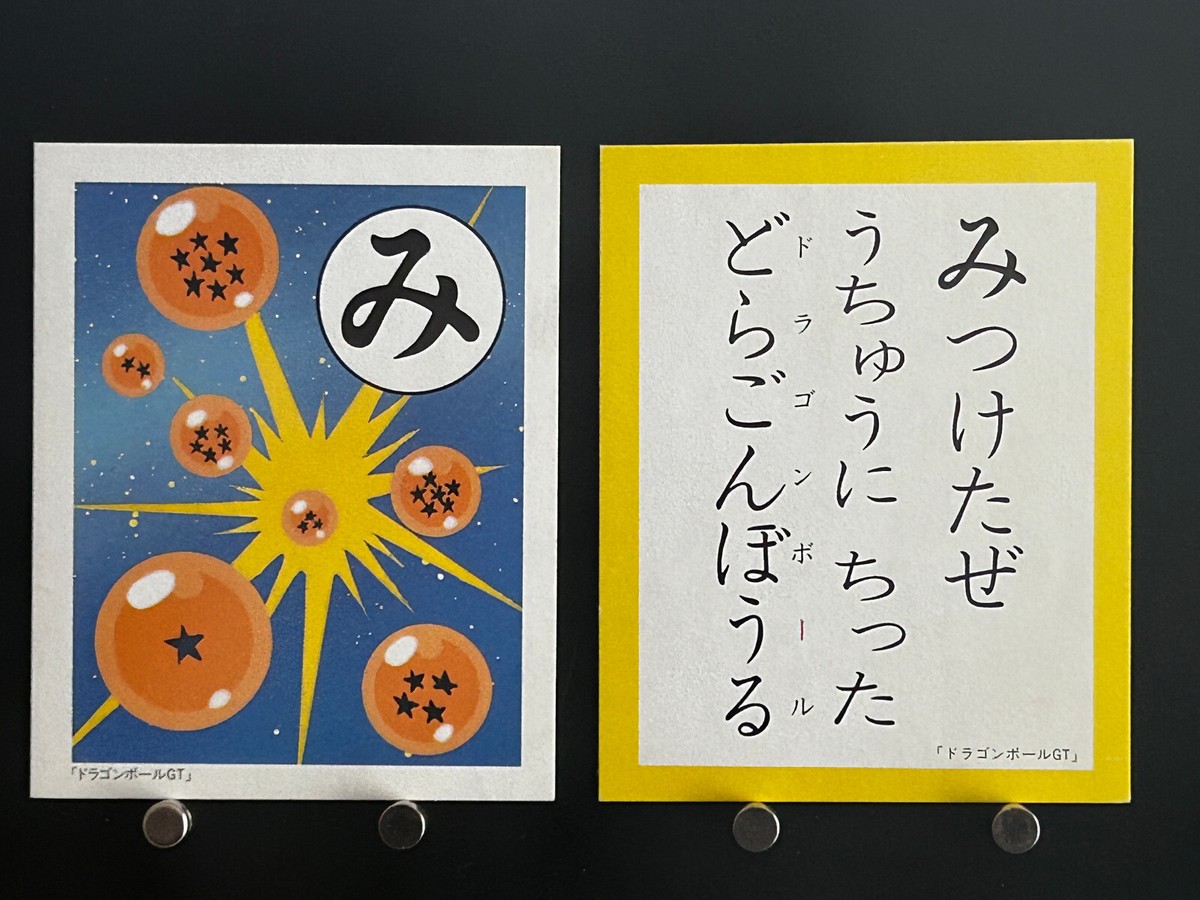 み
「ドラゴンボールGT」
みつけたぜ
うちゅうに ちった
どらごんぼうる
ドラゴンボール
「ドラゴンボールGT」